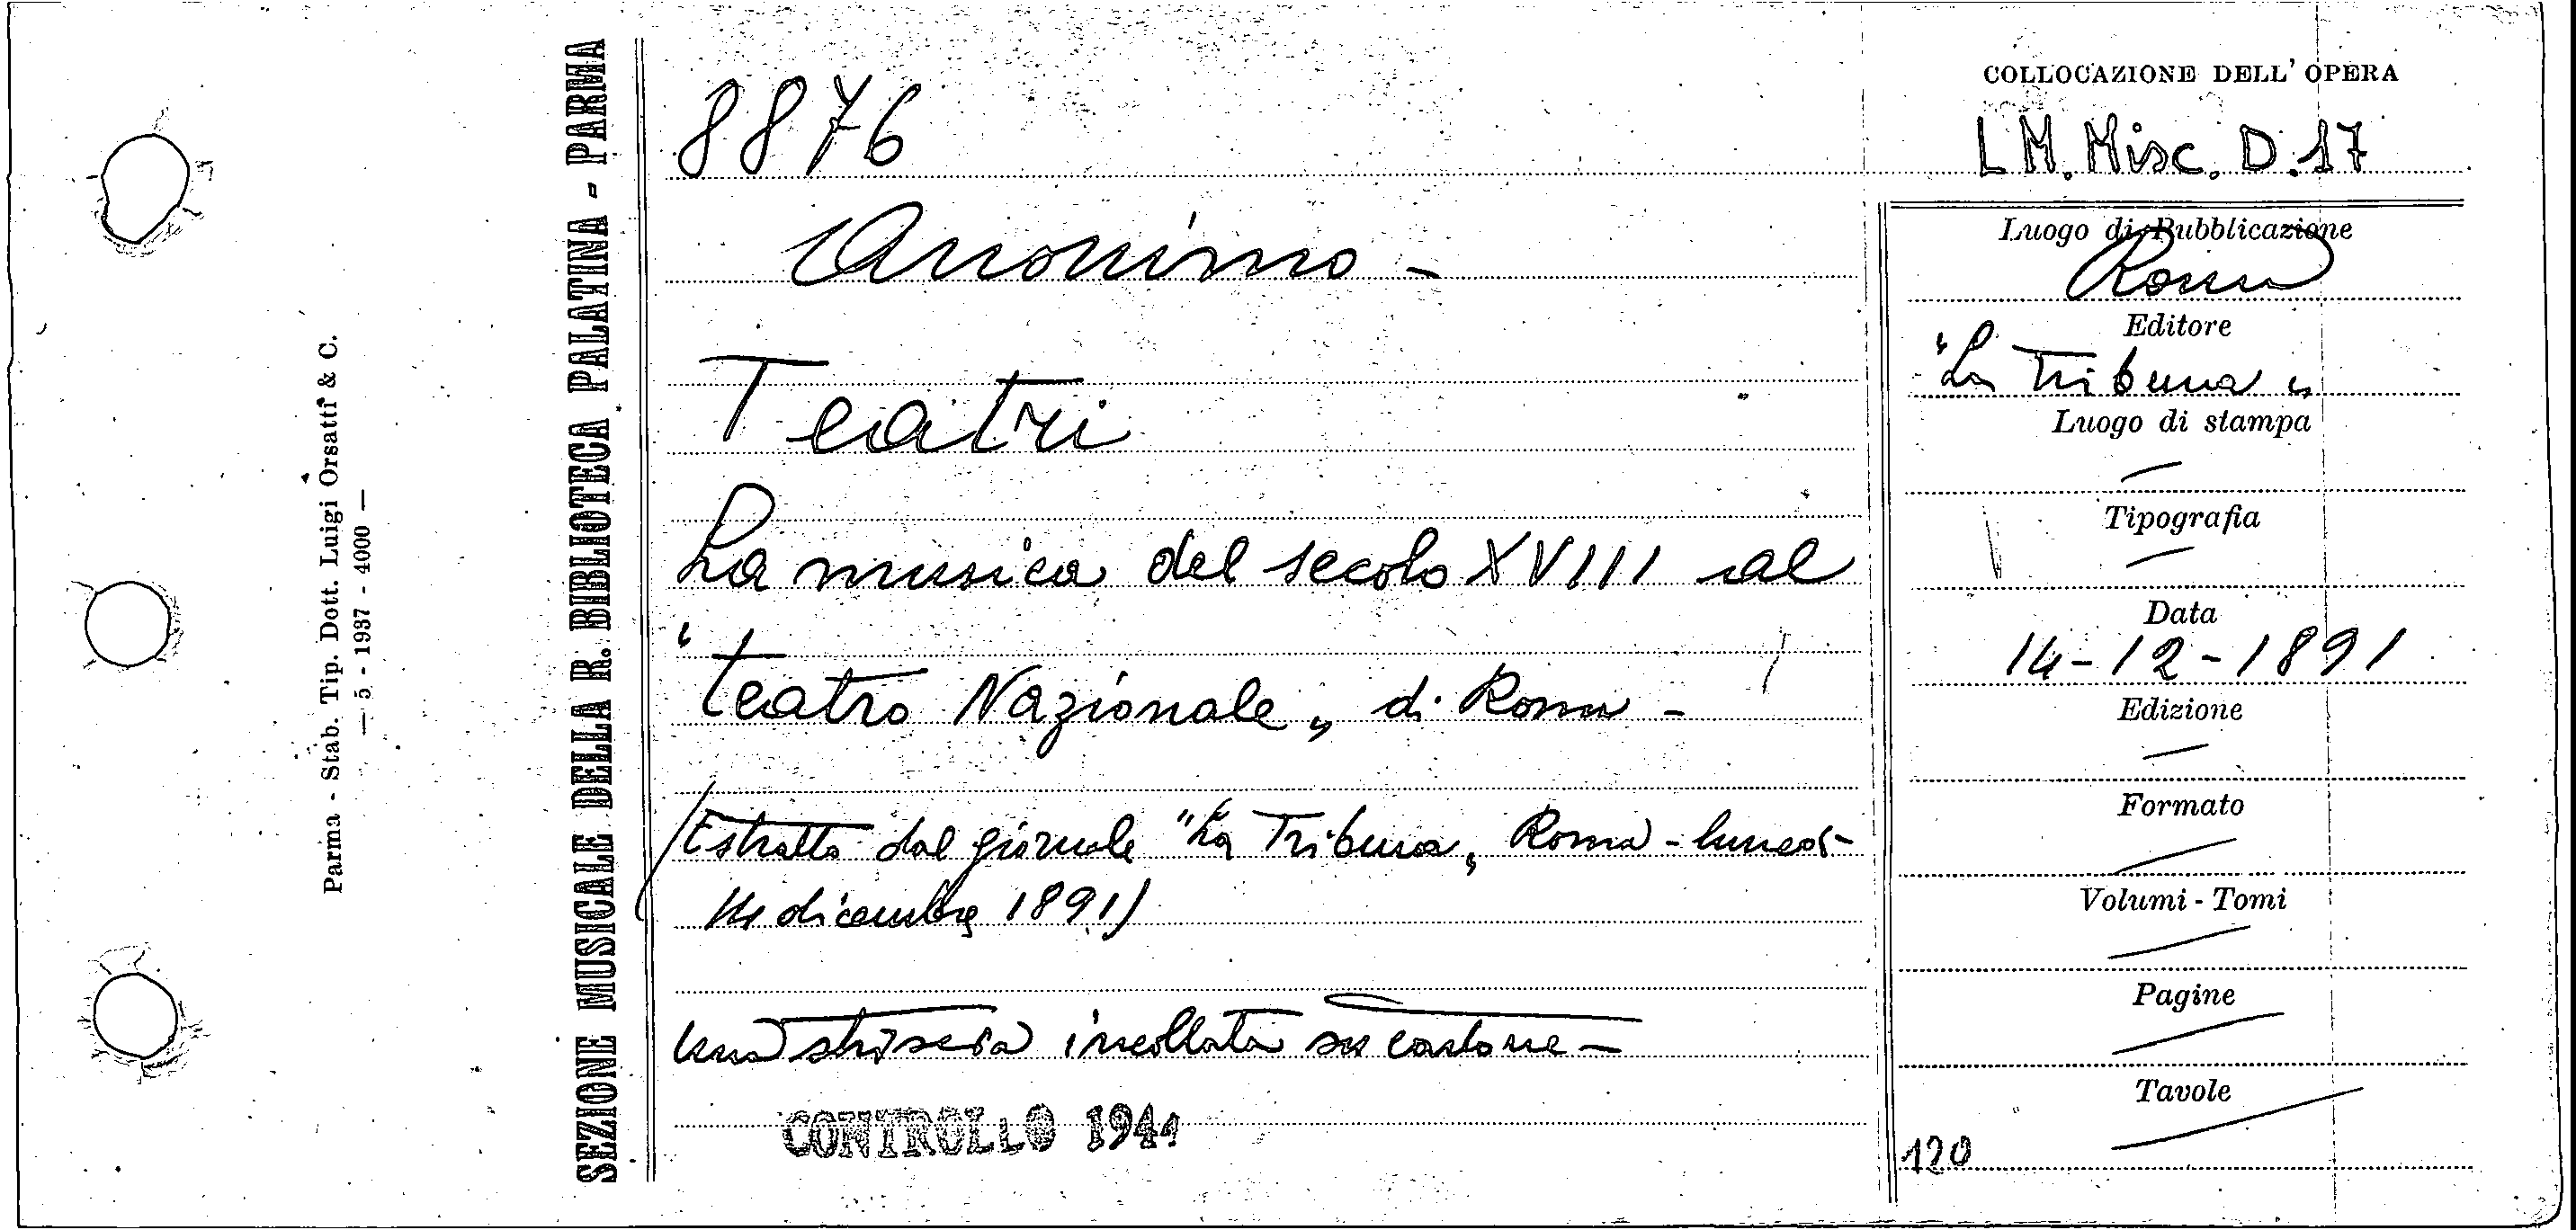 Parma - Stab. Tip. Dott. Luigi Orsatti & C.
— 5 - 1937 - 4000 —
SEZIONE MUSICALE DELLA R. BIBLIOTECA PALATINA - PARMA
8876
Anonimo -
Teatri
La musica del secolo XVIII al
"Teatro Nazionale„ di Roma -
(Estratto dal giornale "La Tribuna„ Roma - lunedì
14 dicembre 1891)
Una striscia incollata su cartone -
CONTROLLO 1941
COLLOCAZIONE DELL' OPERA
L M. Misc. D. 17
Luogo di Pubblicazione
Roma
Editore
"La Tribuna„
Luogo di stampa
—
Tipografia
—
Data
14-12-1891
Edizione
—
Formato
—
Volumi - Tomi
—
Pagine
—
Tavole
—
120